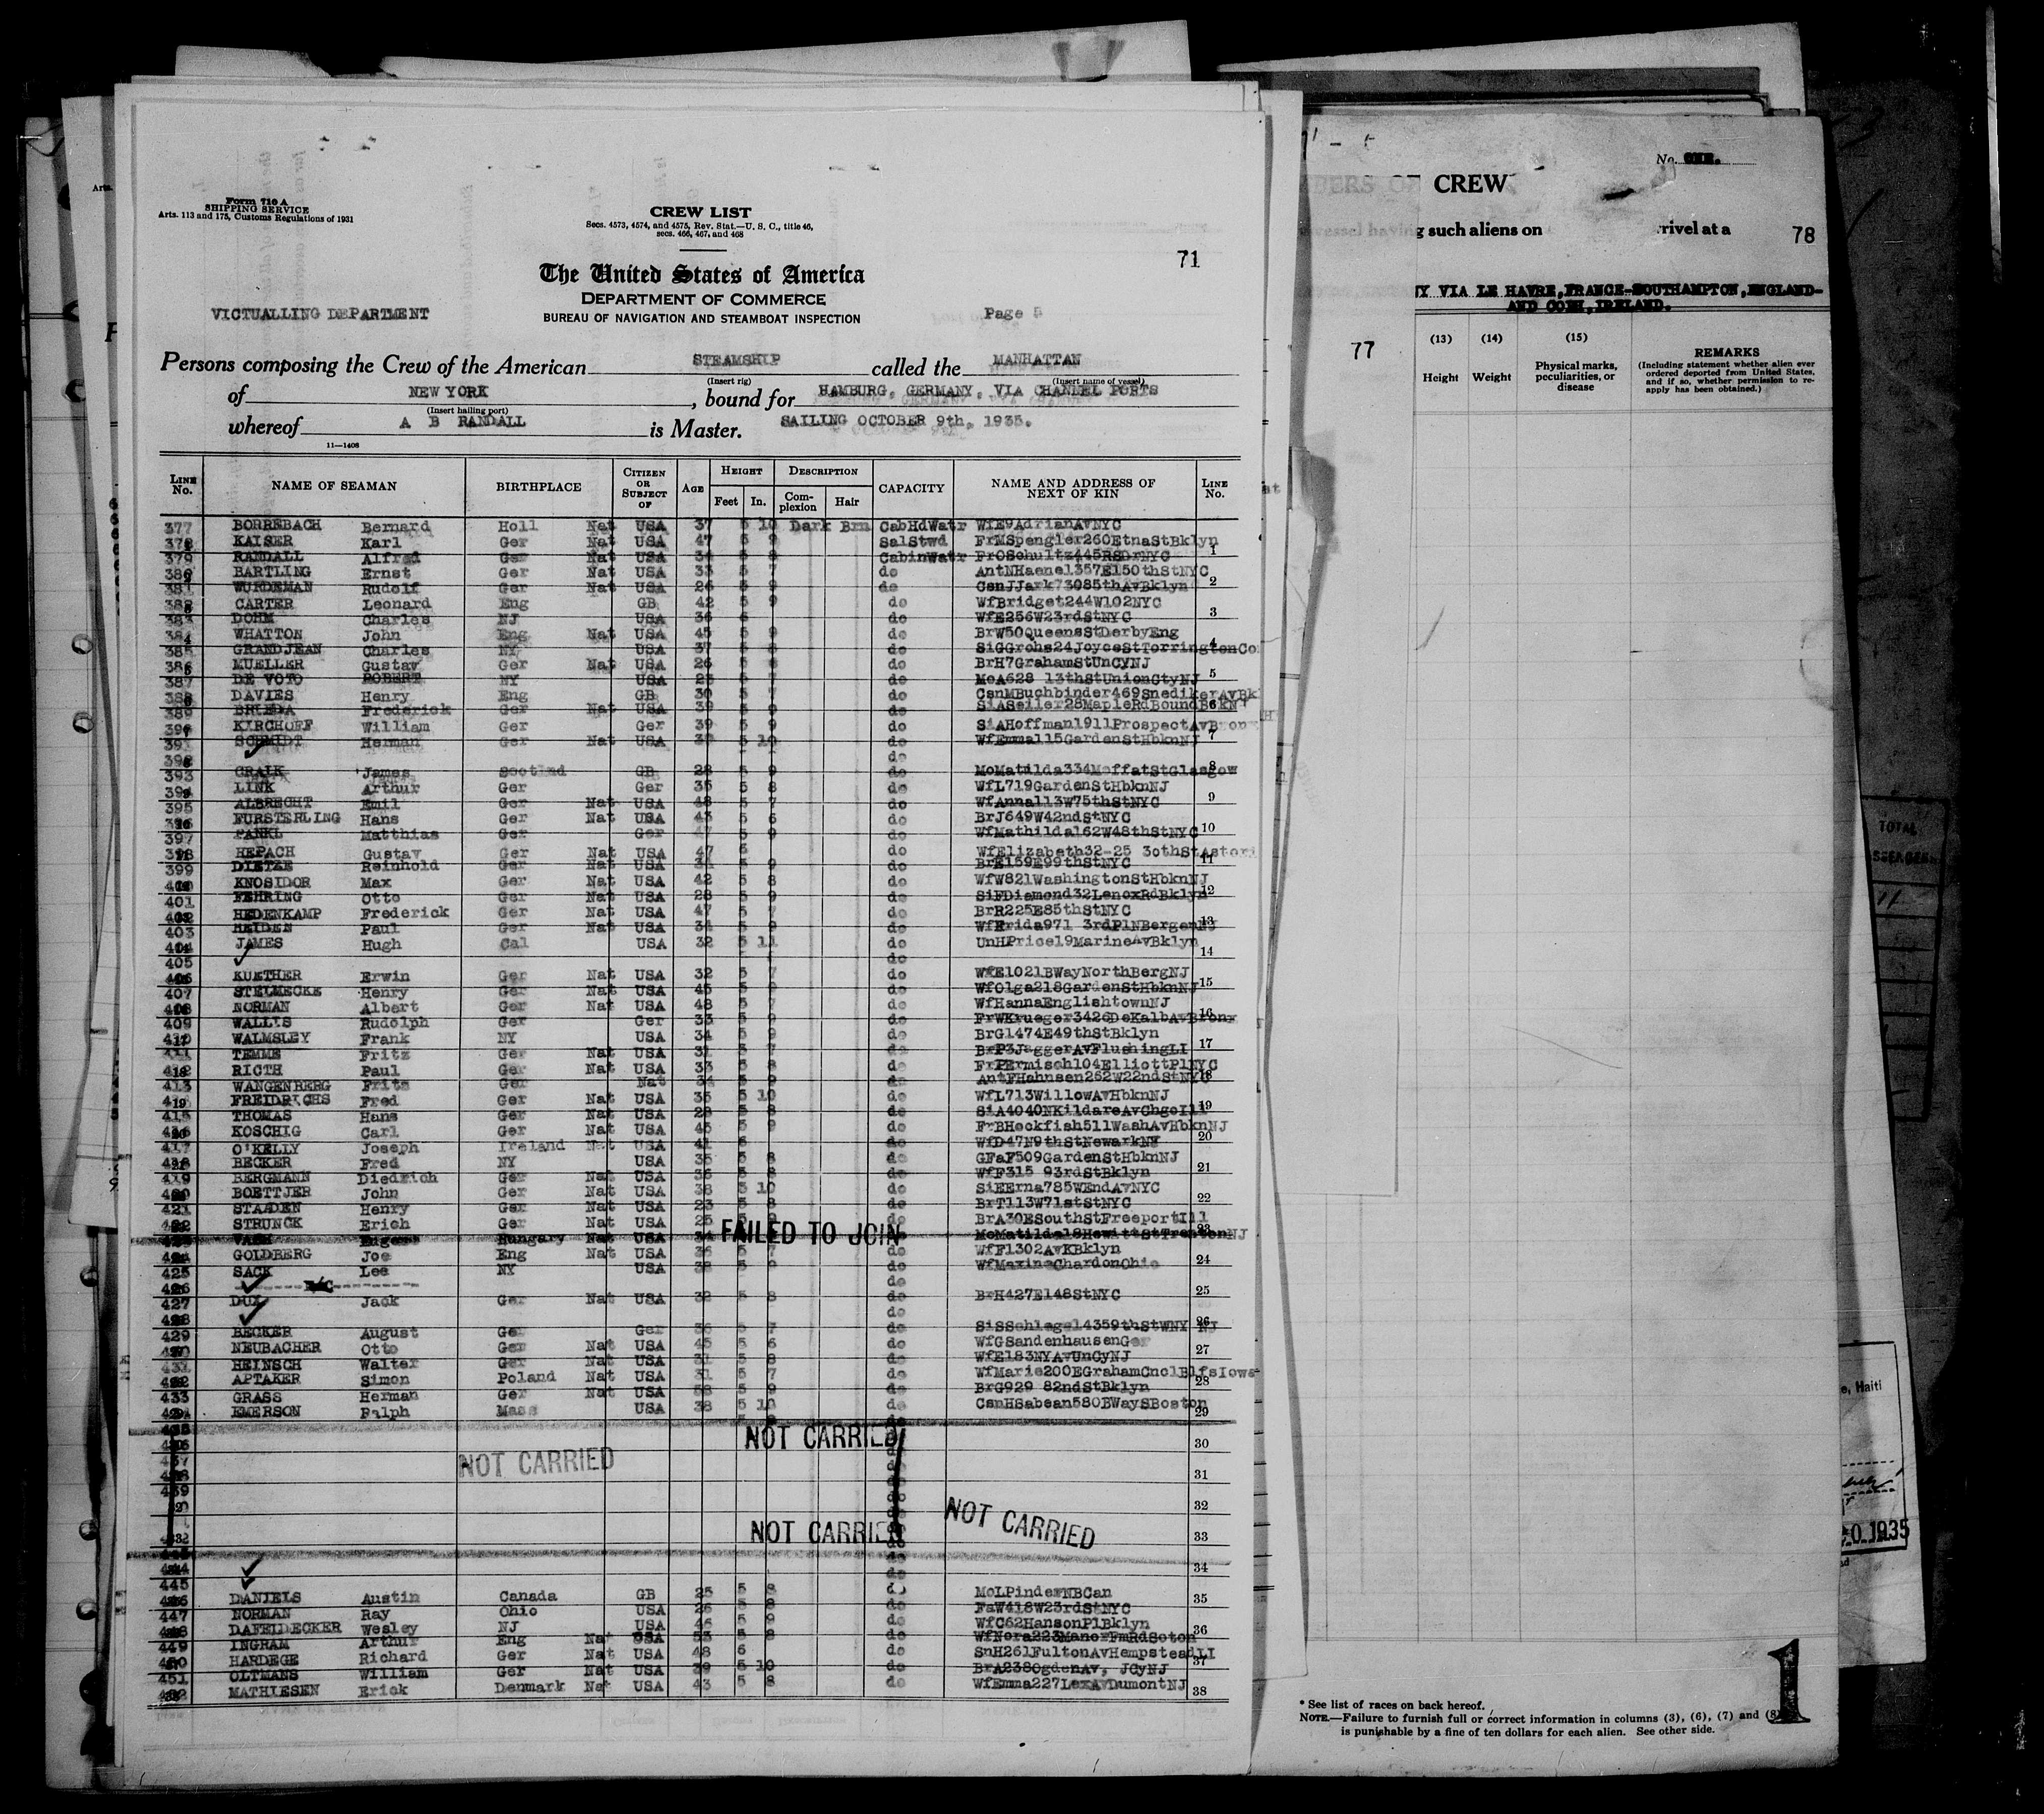 Form 710 A
SHIPPING SERVICE
Arts. 113 and 175, Customs Regulations of 1931
CREW LIST
Secs. 4573, 4574, and 4575, Rev. Stat.—U. S. C., title 46,
secs. 466, 467, and 468
71
The United States of America
DEPARTMENT OF COMMERCE
BUREAU OF NAVIGATION AND STEAMBOAT INSPECTION
VICTUALLING DEPARTMENT
Page 5
Persons composing the Crew of the American STEAMSHIP called the MANHATTAN
(Insert rig) (Insert name of vessel)
of NEW YORK, bound for HAMBURG, GERMANY, VIA CHANNEL PORTS
(Insert hailing port)
whereof A B RANDALL is Master. SAILING OCTOBER 9th, 1935.
11—1408
LINE No. NAME OF SEAMAN BIRTHPLACE CITIZEN OR SUBJECT OF AGE HEIGHT Feet In. DESCRIPTION Complexion Hair CAPACITY NAME AND ADDRESS OF NEXT OF KIN LINE No.
377 BORREBACH Bernard Holl Nat USA 37 5 10 Dark Brn CabHdWatr WfE9AdrianAvNYC
378 KAISER Karl Ger Nat USA 47 5 9 SalStwd FrMSpengler260EtnaStBklyn
379 RANDALL Alfred Ger Nat USA 34 5 8 CabinWatr FrOSchultz445RSDrNYC 1
380 BARTLING Ernst Ger Nat USA 33 5 7 do AntNHaenel357E150thStNYC
381 WURDEMAN Rudolf Ger Nat USA 26 5 9 do CsnJJark73085thAvBklyn 2
382 CARTER Leonard Eng GB 42 5 9 do WfBridget244W102NYC
383 DOHM Charles NJ USA 36 6 do WfE256W23rdStNYC 3
384 WHATTON John Eng Nat USA 45 5 9 do BrW50QueensStDerbyEng
385 GRANDJEAN Charles NY USA 37 5 8 do SiGGrohs24JoyceStTorringtonCo 4
386 MUELLER Gustav Ger Nat USA 26 5 8 do BrH7GrahamStUnCYNJ
387 DE VOTO ROBERT NY USA 23 5 7 do MoA628 13thStUnionCtyNJ 5
388 DAVIES Henry Eng GB 30 5 7 do CsnMBuchbinder469SnedikerAvBk
389 Frederick Ger Nat USA 39 5 9 do SiASeiler28MapleRdBoundB 6
390 KIRCHOFF William Ger Ger 39 5 9 do SiAHoffman1911ProspectAvBronx
391 SCHMIDT Herman Ger Nat USA 39 5 10 do WfEmma115GardenStHbknNJ 7
392 do
393 CRAIK James Scotlnd GB 28 5 9 do MoMatilda334MoffatStGlasgow 8
394 LINK Arthur Ger Ger 35 5 8 do WfL719GardenStHbknNJ
395 ALBRECHT Emil Ger Nat USA 48 5 7 do WfAnna113W75thStNYC 9
396 FURSTERLING Hans Ger Nat USA 43 5 6 do BrJ649W42ndStNYC
397 PANKL Matthias Ger Ger 47 5 9 do WfMathilda162W48thStNYC 10
398 HEPACH Gustav Ger Nat USA 47 5 do WfElizabeth32-25 30thStAstori
399 DIETZE Reinhold Ger Nat USA 34 5 9 do BrE159E99thStNYC 11
400 KNOSIDOR Max Ger Nat USA 42 5 8 do WfW821WashingtonStHbknNJ
401 FEHRING Otto Ger Nat USA 28 5 9 do SiFDiamond32LenoxRdBklyn 12
402 HEDENKAMP Frederick Ger Nat USA 47 5 7 do BrR225E85thStNYC
403 HEIDEN Paul Ger Nat USA 34 5 9 do WfErida971 3rdPlNBergenNJ 13
404 JAMES Hugh Cal USA 32 5 11 do UnHPrice19MarineAvBklyn
405 do 14
406 KUETHER Erwin Ger Nat USA 32 5 7 do WfE1021BWayNorthBergNJ
407 STELMECKE Henry Ger Nat USA 45 5 9 do WfOlga218GardenStHbknNJ 15
408 NORMAN Albert Ger Nat USA 48 5 7 do WfHannaEnglishtownNJ
409 WALLIS Rudolph Ger Ger 33 5 9 do FrWKrueger3426DeKalbAvBronx 16
410 WALMSLEY Frank NY USA 34 5 9 do BrG1474E49thStBklyn
411 TEMME Fritz Ger Nat USA 31 5 7 do BrP3JaggerAvFlushingLI 17
412 RICTH Paul Ger Nat USA 33 5 8 do FrPErmisch104ElliottPlNYC
413 WANGENBERG Fritz Ger Nat 34 5 9 do AntFHahnsen262W22ndStNYC 18
414 FREIDRICHS Fred Ger Nat USA 35 5 10 do WfL713WillowAvHbknNJ
415 THOMAS Hans Ger Nat USA 28 5 8 do SiA4040NKildareAvChgoIll 19
416 KOSCHIG Carl Ger Nat USA 45 5 9 do FrBHockfish511WashAvHbknNJ
417 O'KELLY Joseph Ireland Nat USA 41 6 do WfD47N9thStNewarkNJ 20
418 BECKER Fred NY USA 35 5 8 do GFaF509GardenStHbknNJ
419 BERGMANN Diedrich Ger Nat USA 36 5 8 do WfF315 93rdStBklyn 21
420 BOETTJER John Ger Nat USA 38 5 10 do SiEErna785WEndAvNYC
421 STAADEN Henry Ger Nat USA 23 5 8 do BrT113W71stStNYC 22
422 STRUNCK Erich Ger Nat USA 25 5 9 do BrA30ESouthStFreeportIll
Hungary Nat USA FAILED TO JOIN MoMatilda18HewittStTrentonNJ 23
424 GOLDBERG Joe Eng Nat USA 36 5 7 do WfF1302AvKBklyn
425 SACK Lee NY USA 38 5 9 do WfMaxineChardonOhio 24
426 do
427 DUX Jack Ger Nat USA 32 5 8 do BrH427E148StNYC 25
428 do
429 BECKER August Ger Ger 36 5 7 do SiSSchlegel4359thStWNY NJ 26
430 NEUBACHER Otto Ger Nat USA 45 5 6 do WfGSandenhausenGer
431 HEINSCH Walter Ger Nat USA 31 5 8 do WfE183NYAvUnCyNJ 27
432 APTAKER Simon Poland Nat USA 31 5 7 do WfMarie200EGrahamCnclBlfsIowa
433 GRASS Herman Ger Nat USA 58 5 9 do BrG929 82ndStBklyn 28
434 EMERSON Ralph Mass USA 38 5 10 do CsnHSabean580BWaySBoston 29
NOT CARRIED 30
NOT CARRIED 31
32
NOT CARRIED NOT CARRIED 33
34
445
446 DANIELS Austin Canada GB 25 5 8 do MoLPinderNBCan 35
447 NORMAN Ray Ohio USA 26 5 8 do FaW418W23rdStNYC
448 DAFELDECKER Wesley NJ USA 46 5 9 do WfC62HansonPlBklyn 36
449 INGRAM Arthur Eng Nat USA 53 5 8 do WfNora223ManorFmRdSoton
450 HARDEGE Richard Ger Nat USA 48 6 do SnH261FultonAvHempsteadLI 37
451 OLTMANS William Ger Nat USA 39 5 10 do BrA238OgdenAv, JCyNJ
452 MATHIESEN Erick Denmark Nat USA 43 5 8 do WfEmma227LexAvDumontNJ 38
No. ONE.
CREW
such aliens on
rrivel at a
78
Y VIA LE HAVRE,FRANCE-SOUTHAMPTON,ENGLAND-
AND COBH,IRELAND.
77
(13) Height
(14) Weight
(15) Physical marks, peculiarities, or disease
REMARKS
(Including statement whether alien ever ordered deported from United States, and if so, whether permission to reapply has been obtained.)
* See list of races on back hereof.
NOTE.—Failure to furnish full or correct information in columns (3), (6), (7) and (8)
is punishable by a fine of ten dollars for each alien. See other side.
1
TOTAL
, Haiti
1935